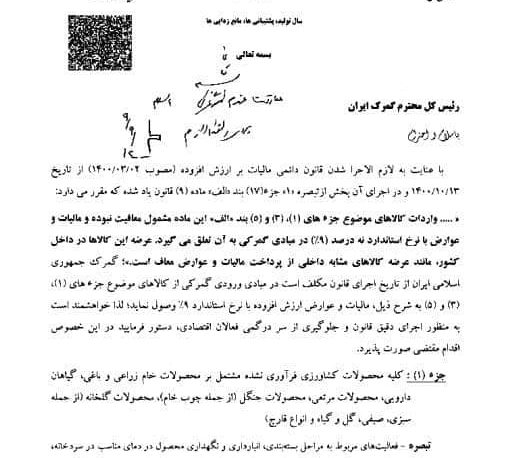 سال تولید، پشتیبانی ها، مانع زدایی ها
بسمه تعالی
رئیس کل محترم گمرک ایران
باسلام و احترام
با عنایت به لازم الاجرا شدن قانون دائمی مالیات بر ارزش افزوده (مصوب ۱۴۰۰/۰۳/۰۲) از تاریخ
۱۴۰۰/۱۰/۱۳ و در اجرای آن بخش ازتبصره «۱» جزء(۱۷) بند «الف» ماده (۹) قانون یاد شده که مقرر می دارد:
« ..... واردات کالاهای موضوع جزء های (۱)، (۳) و (۵) بند «الف» این ماده مشمول معافیت نبوده و مالیات و
عوارض با نرخ استاندارد نه درصد (۹٪) در مبادی گمرکی به آن تعلق می گیرد. عرضه این کالاها در داخل
کشور، مانند عرضه کالاهای مشابه داخلی از پرداخت مالیات و عوارض معاف است.»؛ گمرک جمهوری
اسلامی ایران از تاریخ اجرای قانون مکلف است در مبادی ورودی گمرکی از کالاهای موضوع جزء های (۱)،
(۳) و (۵) به شرح ذیل، مالیات و عوارض ارزش افزوده با نرخ استاندارد ۹٪ وصول نماید؛ لذا خواهشمند است
به منظور اجرای دقیق قانون و جلوگیری از سر درگمی فعالان اقتصادی، دستور فرمایید در این خصوص
اقدام مقتضی صورت پذیرد.
جزء (۱) : کلیه محصولات کشاورزی فرآوری نشده مشتمل بر محصولات خام زراعی و باغی، گیاهان
دارویی، محصولات مرتعی، محصولات جنگل (از جمله چوب خام)، محصولات گلخانه (از جمله
سبزی، صیفی، گل و گیاه و انواع قارچ)
تبصره - فعالیت‌های مربوط به مراحل بسته‌بندی، انبارداری و نگهداری محصول در دمای مناسب در سردخانه،